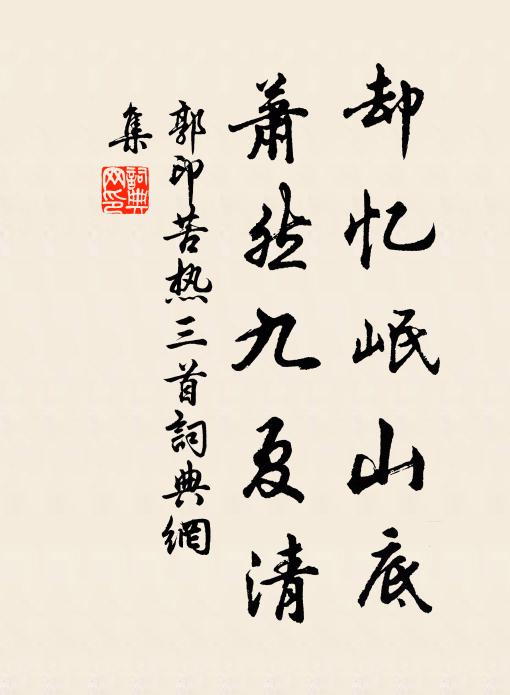 却忆岷山底
萧然九夏清
郭印苦热三首詞典網
集
詞典
网印